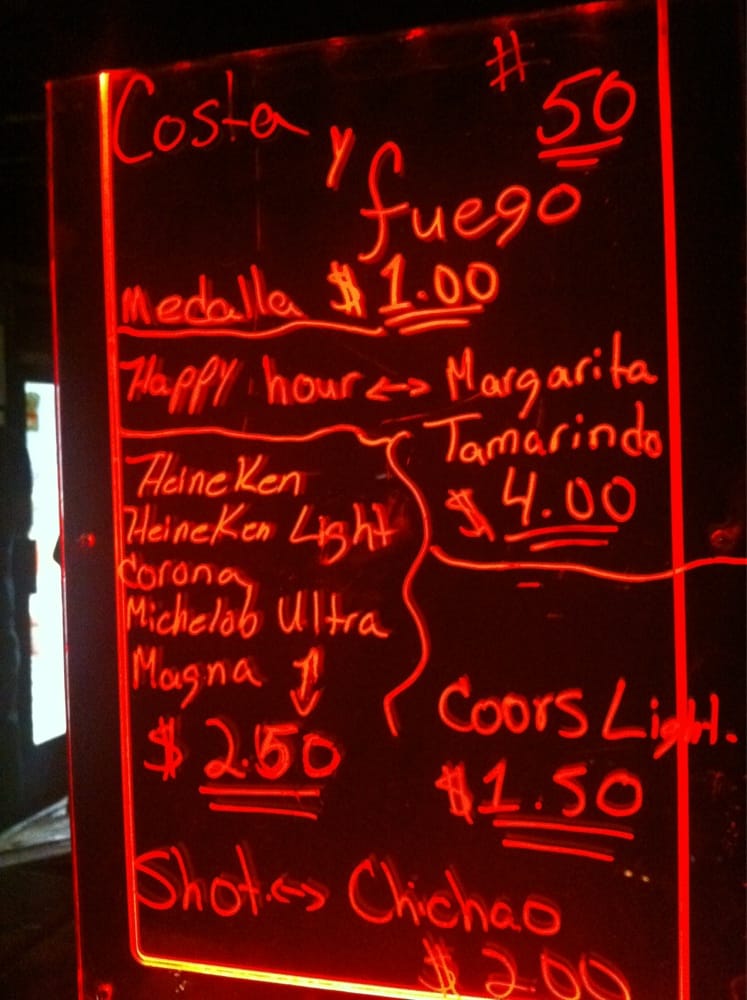 Costa y fuego # 50
Medalla $ 1.00
Happy hour ↔ Margarita
Tamarindo
$ 4.00
Heineken
Heineken Light
Corona
Michelob Ultra
Magna
$ 2.50
Coors Light.
$ 1.50
Shot ↔ Chichao
$ 2.00